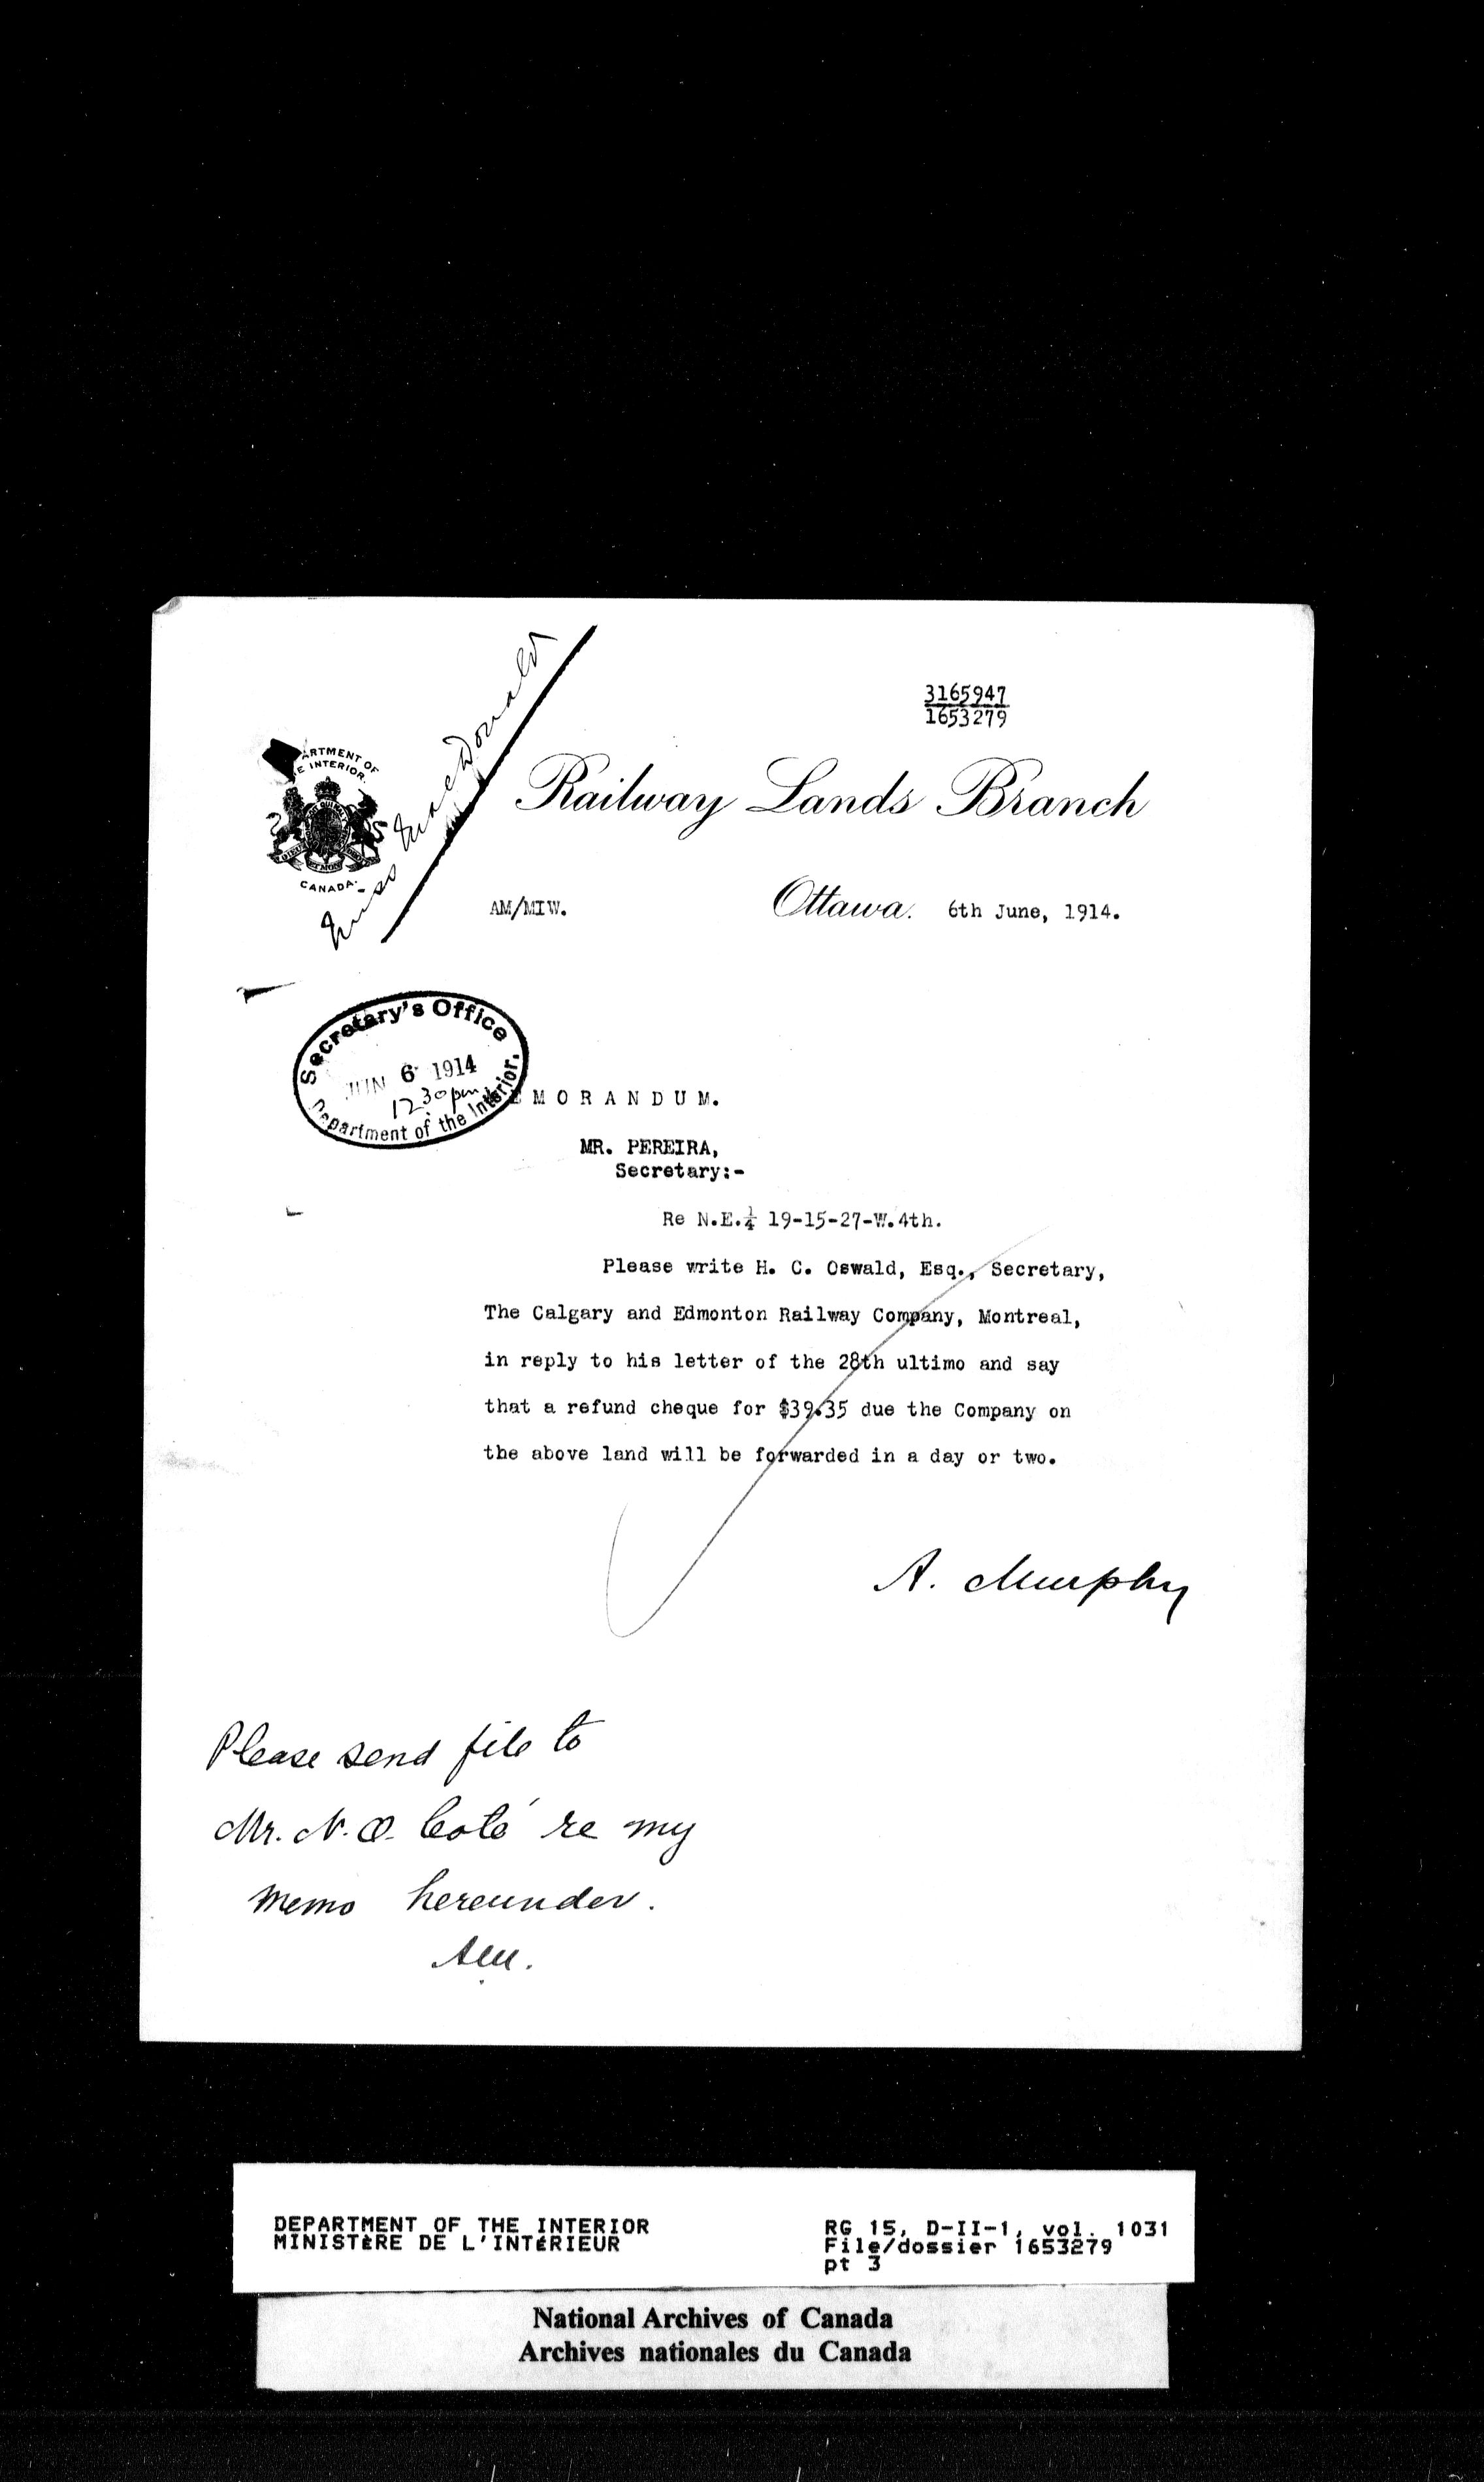 3165947
1653279
Miss MacDonald
ARTMENT OF
E INTERIOR.
CANADA.
Railway Lands Branch
AM/MIW.
Ottawa. 6th June, 1914.
Secretary's Office
JUN 6 1914
12 30 pm
Department of the Interior.
EMORANDUM.
MR. PEREIRA,
Secretary:-
Re N.E.¼ 19-15-27-W.4th.
Please write H. C. Oswald, Esq., Secretary,
The Calgary and Edmonton Railway Company, Montreal,
in reply to his letter of the 28th ultimo and say
that a refund cheque for $39.35 due the Company on
the above land will be forwarded in a day or two.
A. Murphy
Please send file to
Mr. N. O. Coté re my
memo hereunder.
AM.
DEPARTMENT OF THE INTERIOR
MINISTÈRE DE L'INTÉRIEUR
RG 15, D-II-1, vol. 1031
File/dossier 1653279
pt 3
National Archives of Canada
Archives nationales du Canada